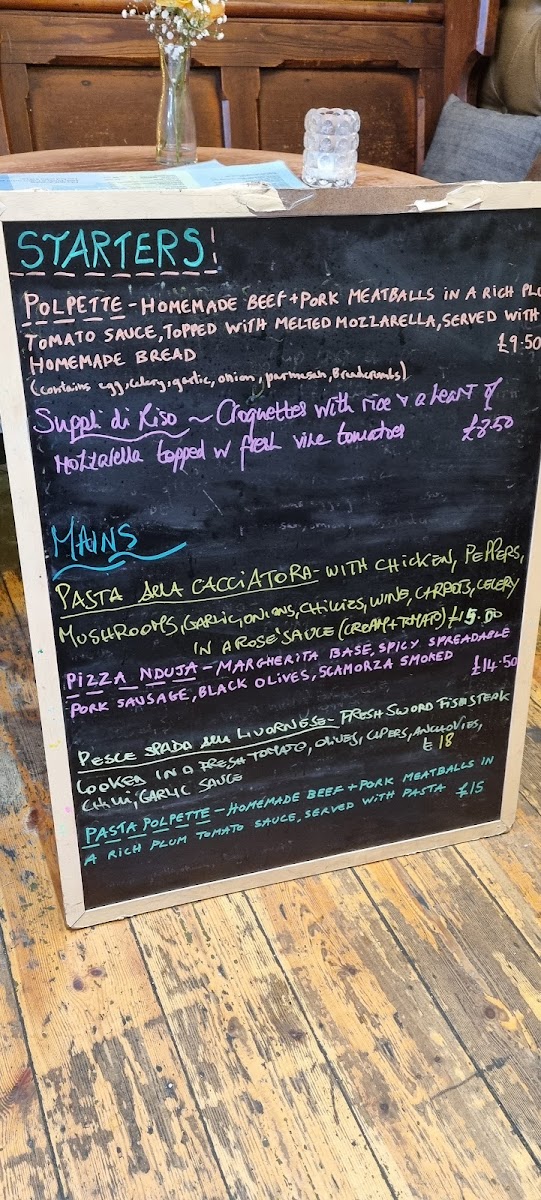 STARTERS!
POLPETTE - HOMEMADE BEEF + PORK MEATBALLS IN A RICH PLU
TOMATO SAUCE, TOPPED WITH MELTED MOZZARELLA, SERVED WITH
HOMEMADE BREAD £9.50
(contains egg, celery, garlic, onion, parmesan, Breadcrumbs)
Suppli di Riso ~ Croquettes with rice & a heart of
Mozzarella topped w fresh vine tomatoes £8.50
MAINS
PASTA ALLA CACCIATORA - WITH CHICKEN, PEPPERS,
MUSHROOMS, GARLIC, ONIONS, CHILLIES, WINE, CARROTS, CELERY
IN A ROSE' SAUCE (CREAM + TOMATO) £15.00
PIZZA NDUJA - MARGHERITA BASE, SPICY SPREADABLE
PORK SAUSAGE, BLACK OLIVES, SCAMORZA SMOKED £14.50
PESCE SPADA ALLA LIVORNESE - FRESH SWORD FISH STEAK
COOKED IN A FRESH TOMATO, OLIVES, CAPERS, ANCHOVIES,
CHILLI, GARLIC SAUCE £18
PASTA POLPETTE - HOMEMADE BEEF + PORK MEATBALLS IN
A RICH PLUM TOMATO SAUCE, SERVED WITH PASTA £15